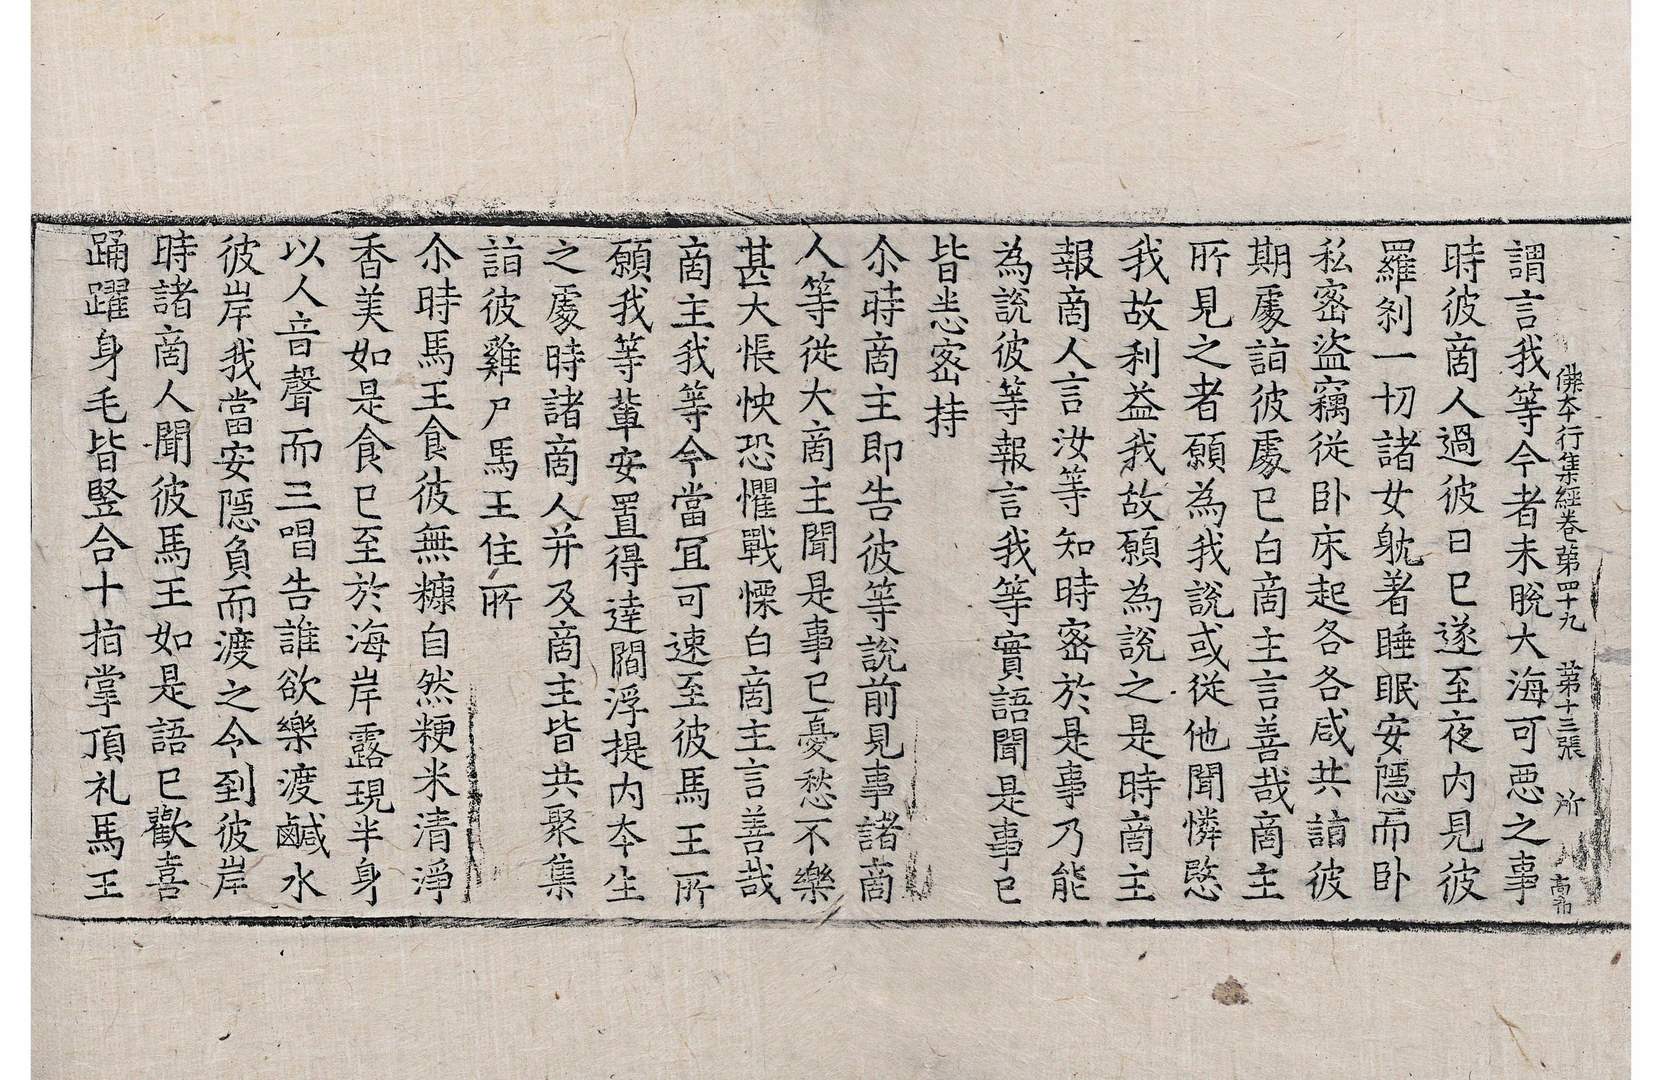 佛本行集經卷第四十九　第十三張　所
謂言我等今者未脫大海可惡之事
時彼商人過彼日已遂至夜內見彼
羅剎一切諸女躭著睡眠安隱而臥
私密盜竊從臥床起各各咸共詣彼
期處詣彼處已白商主言善哉商主
所見之者願為我說或從他聞憐愍
我故利益我故願為說之是時商主
報商人言汝等知時密於是事乃能
為說彼等報言我等實語聞是事已
皆悉密持
尒時商主即告彼等說前見事諸商
人等從大商主聞是事已憂愁不樂
甚大悵怏恐懼戰慄白商主言善哉
商主我等今當冝可速至彼馬王所
願我等輩安置得達閻浮提內本生
之處時諸商人并及商主皆共聚集
詣彼雞尸馬王住所
尒時馬王食彼無糠自然粳米清淨
香美如是食已至於海岸露現半身
以人音聲而三唱告誰欲樂渡鹹水
彼岸我當安隱負而渡之令到彼岸
時諸商人聞彼馬王如是語已歡喜
踊躍身毛皆竪合十指掌頂礼馬王